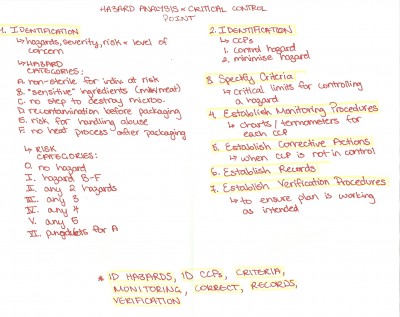 HAZARD ANALYSIS & CRITICAL CONTROL
POINT
1. IDENTIFICATION
↳ hazards, severity, risk & level of
concern
↳ HAZARD
CATEGORIES:
A. non-sterile for indiv. at risk
B. "sensitive" ingredients (milk/meat)
C. no step to destroy microbo.
D. recontamination before packaging
E. risk for handling abuse
F. no heat process after packaging
↳ RISK
CATEGORIES:
0. no hazard
I. hazard B-F
II. any 2 hazards
III. any 3
IV. any 4
V. any 5
VI. products for A
2. IDENTIFICATION
↳ CCPs
1. control hazard
2. minimise hazard
3. Specify Criteria
↳ critical limits for controlling
a hazard
4. Establish Monitoring Procedures
↳ charts / termometers for
each CCP
5. Establish Corrective Actions
↳ when CCP is not in control
6. Establish Records
7. Establish Verification Procedures
↳ to ensure plan is working
as intended
* ID HAZARDS, ID CCPs, CRITERIA,
MONITORING, CORRECT, RECORDS,
VERIFICATION